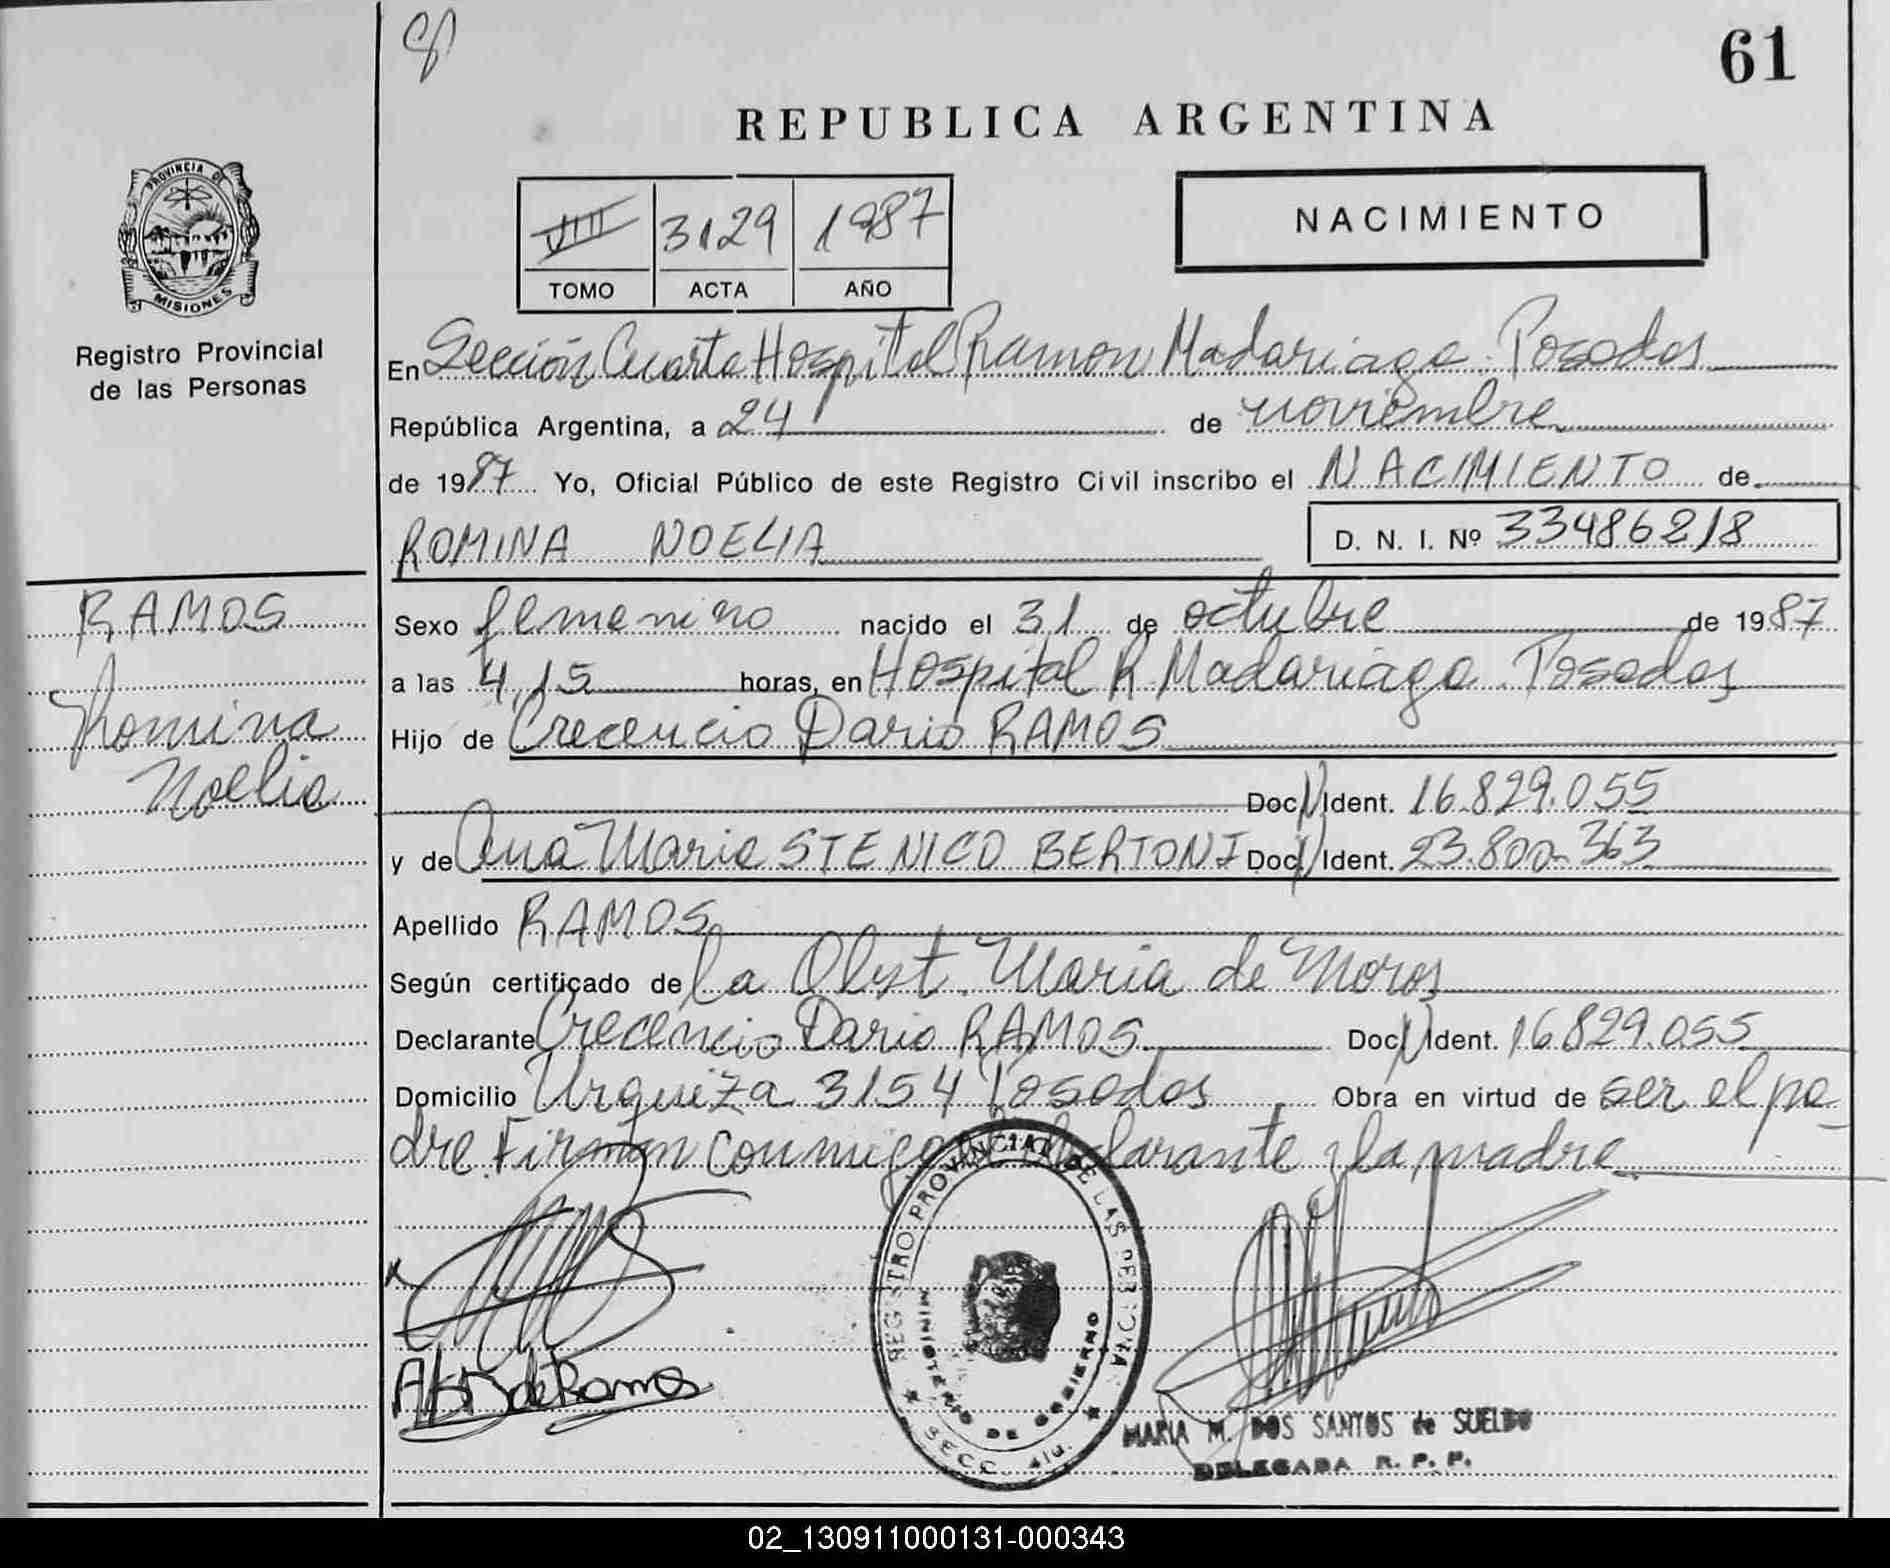 61
REPUBLICA ARGENTINA
PROVINCIA DE
MISIONES
Registro Provincial
de las Personas
VIII 3129 1987
TOMO ACTA AÑO
NACIMIENTO
En Sección Cuarta Hospital Ramon Madariaga Posadas
República Argentina, a 24 de noviembre
de 1987 Yo, Oficial Público de este Registro Civil inscribo el NACIMIENTO de
ROMINA NOELIA D. N. I. Nº 33486218
RAMOS
Romina
Noelia
Sexo femenino nacido el 31 de octubre de 1987
a las 4,15 horas, en Hospital R Madariaga Posadas
Hijo de Crecencio Dario RAMOS
Doc. Ident. 16.829.055
y de Ana Maria STENICO BERTONI Doc. Ident. 23.800.363
Apellido RAMOS
Según certificado de la Obst. Maria de Moros
Declarante Crecencio Dario RAMOS Doc. Ident. 16.829.055
Domicilio Urquiza 3154 Posadas Obra en virtud de ser el pa-
dre. Firman conmigo el declarante y la madre
REGISTRO PROVINCIAL DE LAS PERSONAS
MINISTERIO DE GOBIERNO
SECC. 4ta.
de Ramos
MARIA M. DOS SANTOS de SUELDO
DELEGADA R. P. P.
02_130911000131-000343